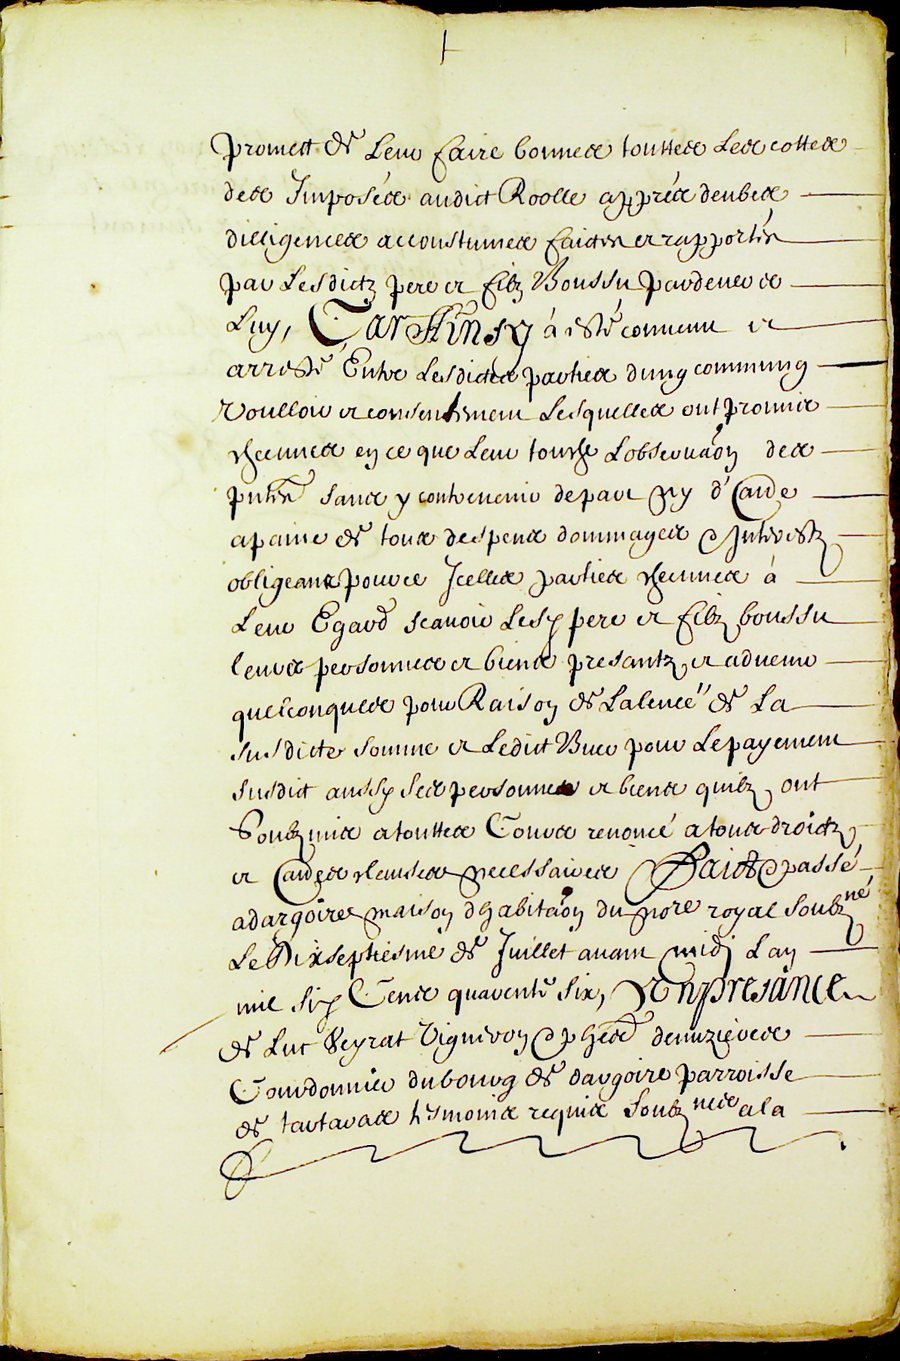 promect de leur faire bonnes touttes les cottes
des Imposés audict Roolle apprés deubes
dilligences accoustumes faictes et rapportés
par Lesdictz pere et filz Boussu pardevers
Luy, Car Ainsy à esté convenu et
arresté Entre Lesdictes parties dung commung
voulloir et consentemens Lesquelles ont promis
chescunes en ce que Leur touche Lobservaon des
pntes sans y contrevenir de part ny d'aude
a paine de tous despens dommages et Interestz
obligeans pour ce Icelles parties chescunes à
Leur Egard scavoir Lesd pere et filz boussu
leurs personnes et biens presantz et advenir
quelconques pour Raison de Lalevée de La
susdicte somme et Ledict Buer pour Le payement
susdict aussy ses personnes et biens quilz ont
Soubzmis a touttes Cours renoncé a tous droictz
et Cauzes necessaires Faict et passé
a dargoire maison dhabitaon du nore royal soubzné
Le Dixseptiesme de Juillet avant midj Lan
mil six Cens quarente six, En presance
de Luc Peyrat Vigneron et phes denuzieres
Courdonnier du bourg de dargoire parroisse
de tartaras tesmoins requis Soubznes a la